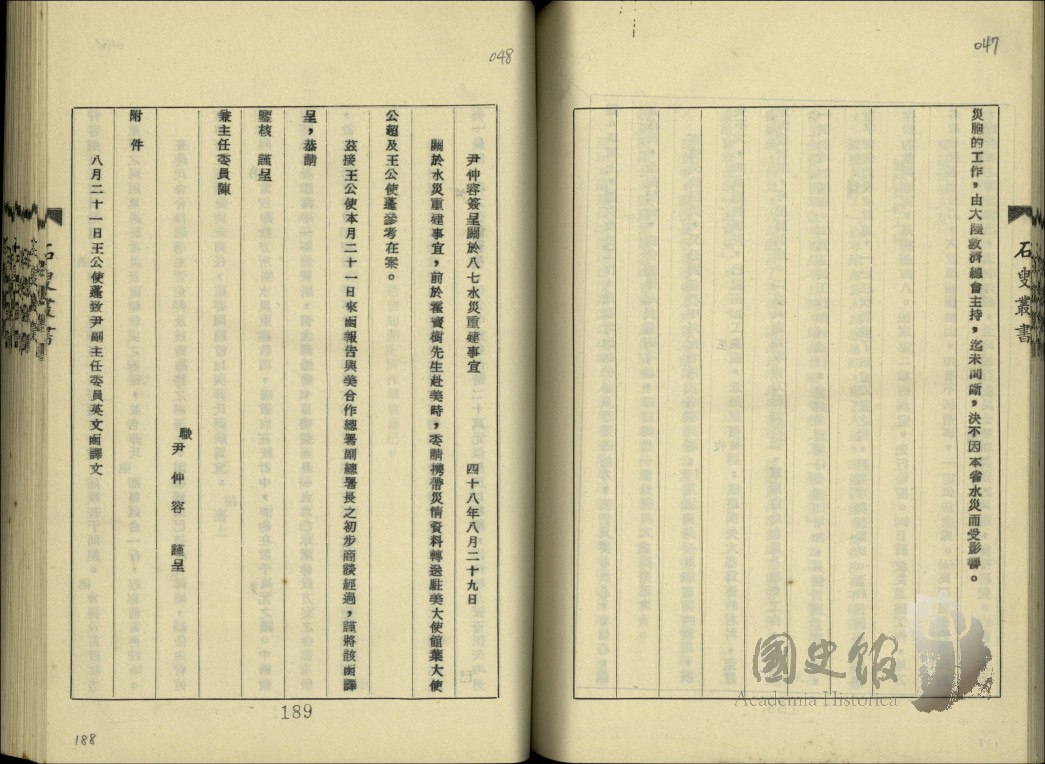 047
災胞的工作，由大陸救濟總會主持，迄未間斷，決不因本省水災而受影響。
石叟叢書
國史館
Academia Historica
048
尹仲容簽呈關於八七水災重建事宜　四十八年八月二十九日
關於水災重建事宜，前於霍寶樹先生赴美時，委請携帶災情資料轉送駐美大使館葉大使
公超及王公使蓬參考在案。
茲接王公使本月二十一日來函報告與美合作總署副總署長之初步商談經過，謹將該函譯
呈，恭請
鑒核　謹呈
兼主任委員陳
職尹仲容　謹呈
附件
八月二十一日王公使蓬致尹副主任委員英文函譯文
189
188
石叟叢書